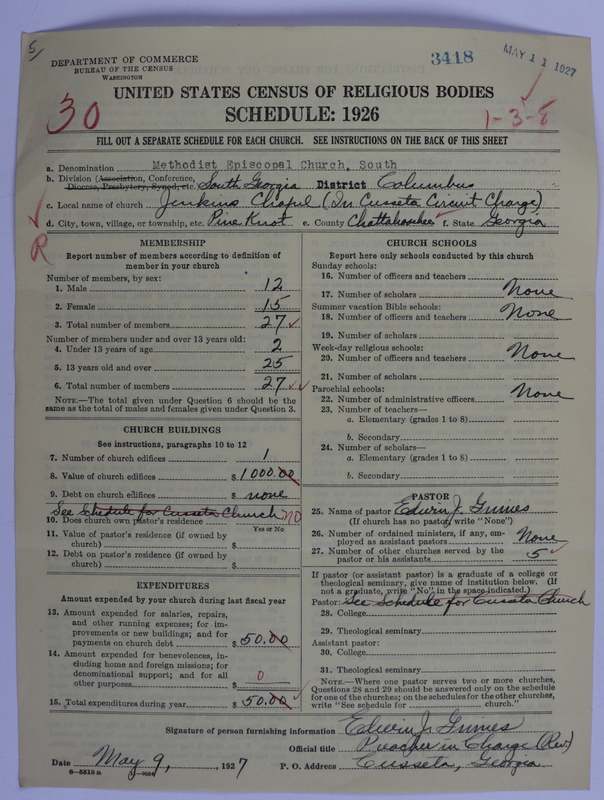 5
DEPARTMENT OF COMMERCE
BUREAU OF THE CENSUS
WASHINGTON
3418
MAY 11 1927
30
UNITED STATES CENSUS OF RELIGIOUS BODIES
SCHEDULE: 1926
1-3-8
FILL OUT A SEPARATE SCHEDULE FOR EACH CHURCH. SEE INSTRUCTIONS ON THE BACK OF THIS SHEET
a. Denomination Methodist Episcopal Church, South
b. Division (Association, Conference,
Diocese, Presbytery, Synod, etc. South Georgia District Columbus
c. Local name of church Jenkins Chapel (In Cusseta Circuit Charge)
d. City, town, village, or township, etc. Pine Knot e. County Chattahoochee f. State Georgia
R
MEMBERSHIP
Report number of members according to definition of
member in your church
Number of members, by sex:
1. Male 12
2. Female 15
3. Total number of members 27
Number of members under and over 13 years old:
4. Under 13 years of age 2
5. 13 years old and over 25
6. Total number of members 27
NOTE.—The total given under Question 6 should be the
same as the total of males and females given under Question 3.
CHURCH BUILDINGS
See instructions, paragraphs 10 to 12
7. Number of church edifices 1
8. Value of church edifices $ 1000.00
9. Debt on church edifices $ none
See Schedule for Cusseta Church no
10. Does church own pastor's residence
Yes or No
11. Value of pastor's residence (if owned by
church) $
12. Debt on pastor's residence (if owned by
church) $
EXPENDITURES
Amount expended by your church during last fiscal year
13. Amount expended for salaries, repairs,
and other running expenses; for im-
provements or new buildings; and for
payments on church debt $ 50.00
14. Amount expended for benevolences, in-
cluding home and foreign missions; for
denominational support; and for all
other purposes $ 0
15. Total expenditures during year $ 50.00
CHURCH SCHOOLS
Report here only schools conducted by this church
Sunday schools:
16. Number of officers and teachers
17. Number of scholars None
Summer vacation Bible schools:
18. Number of officers and teachers None
19. Number of scholars
Week-day religious schools:
20. Number of officers and teachers None
21. Number of scholars
Parochial schools:
22. Number of administrative officers None
23. Number of teachers—
a. Elementary (grades 1 to 8)
b. Secondary
24. Number of scholars—
a. Elementary (grades 1 to 8)
b. Secondary
PASTOR
25. Name of pastor Edwin J. Grimes
(If church has no pastor, write "None")
26. Number of ordained ministers, if any, em-
ployed as assistant pastors None
27. Number of other churches served by the
pastor or his assistants 5
If pastor (or assistant pastor) is a graduate of a college or
theological seminary, give name of institution below. (If
not a graduate, write "No" in the space indicated.)
Pastor: See Schedule for Cusseta Church
28. College
29. Theological seminary
Assistant pastor:
30. College
31. Theological seminary
NOTE.—Where one pastor serves two or more churches,
Questions 28 and 29 should be answered only on the schedule
for one of the churches; on the schedules for the other churches,
write "See schedule for church."
Signature of person furnishing information Edwin J. Grimes
Official title Preacher in Charge (Rev.)
Date May 9, 1927 P. O. Address Cusseta, Georgia
8—5518a